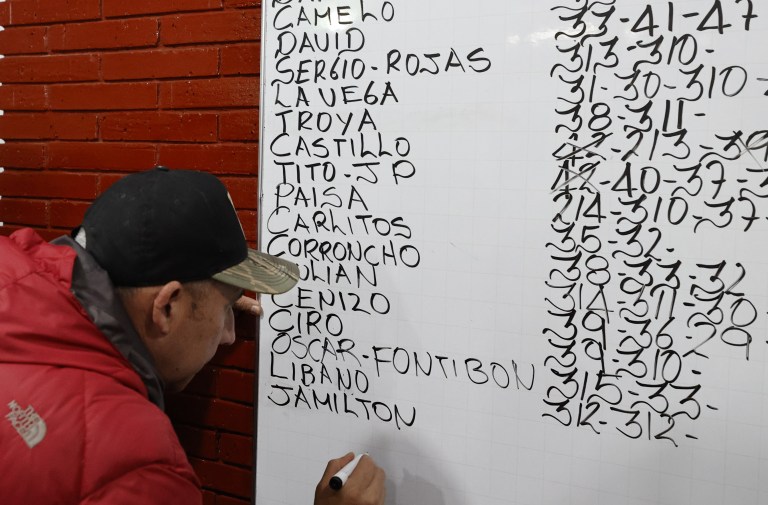 CAMELO
DAVID
SERGIO-ROJAS
LAVEGA
TROYA
CASTILLO
TITO-JP
PAISA
CARLITOS
CORRONCHO
ULIAN
CENIZO
CIRO
OSCAR-FONTIBON
LIBANO
JAMILTON
33-41-47
313-310-
31-30-310-
38-311-
42-213-39
42-40-37-3
214-310-37-
35-32-
38-33-32
314-311-30
39-36-29
39-310-
315-33-
312-312-
THE NORTH FACE